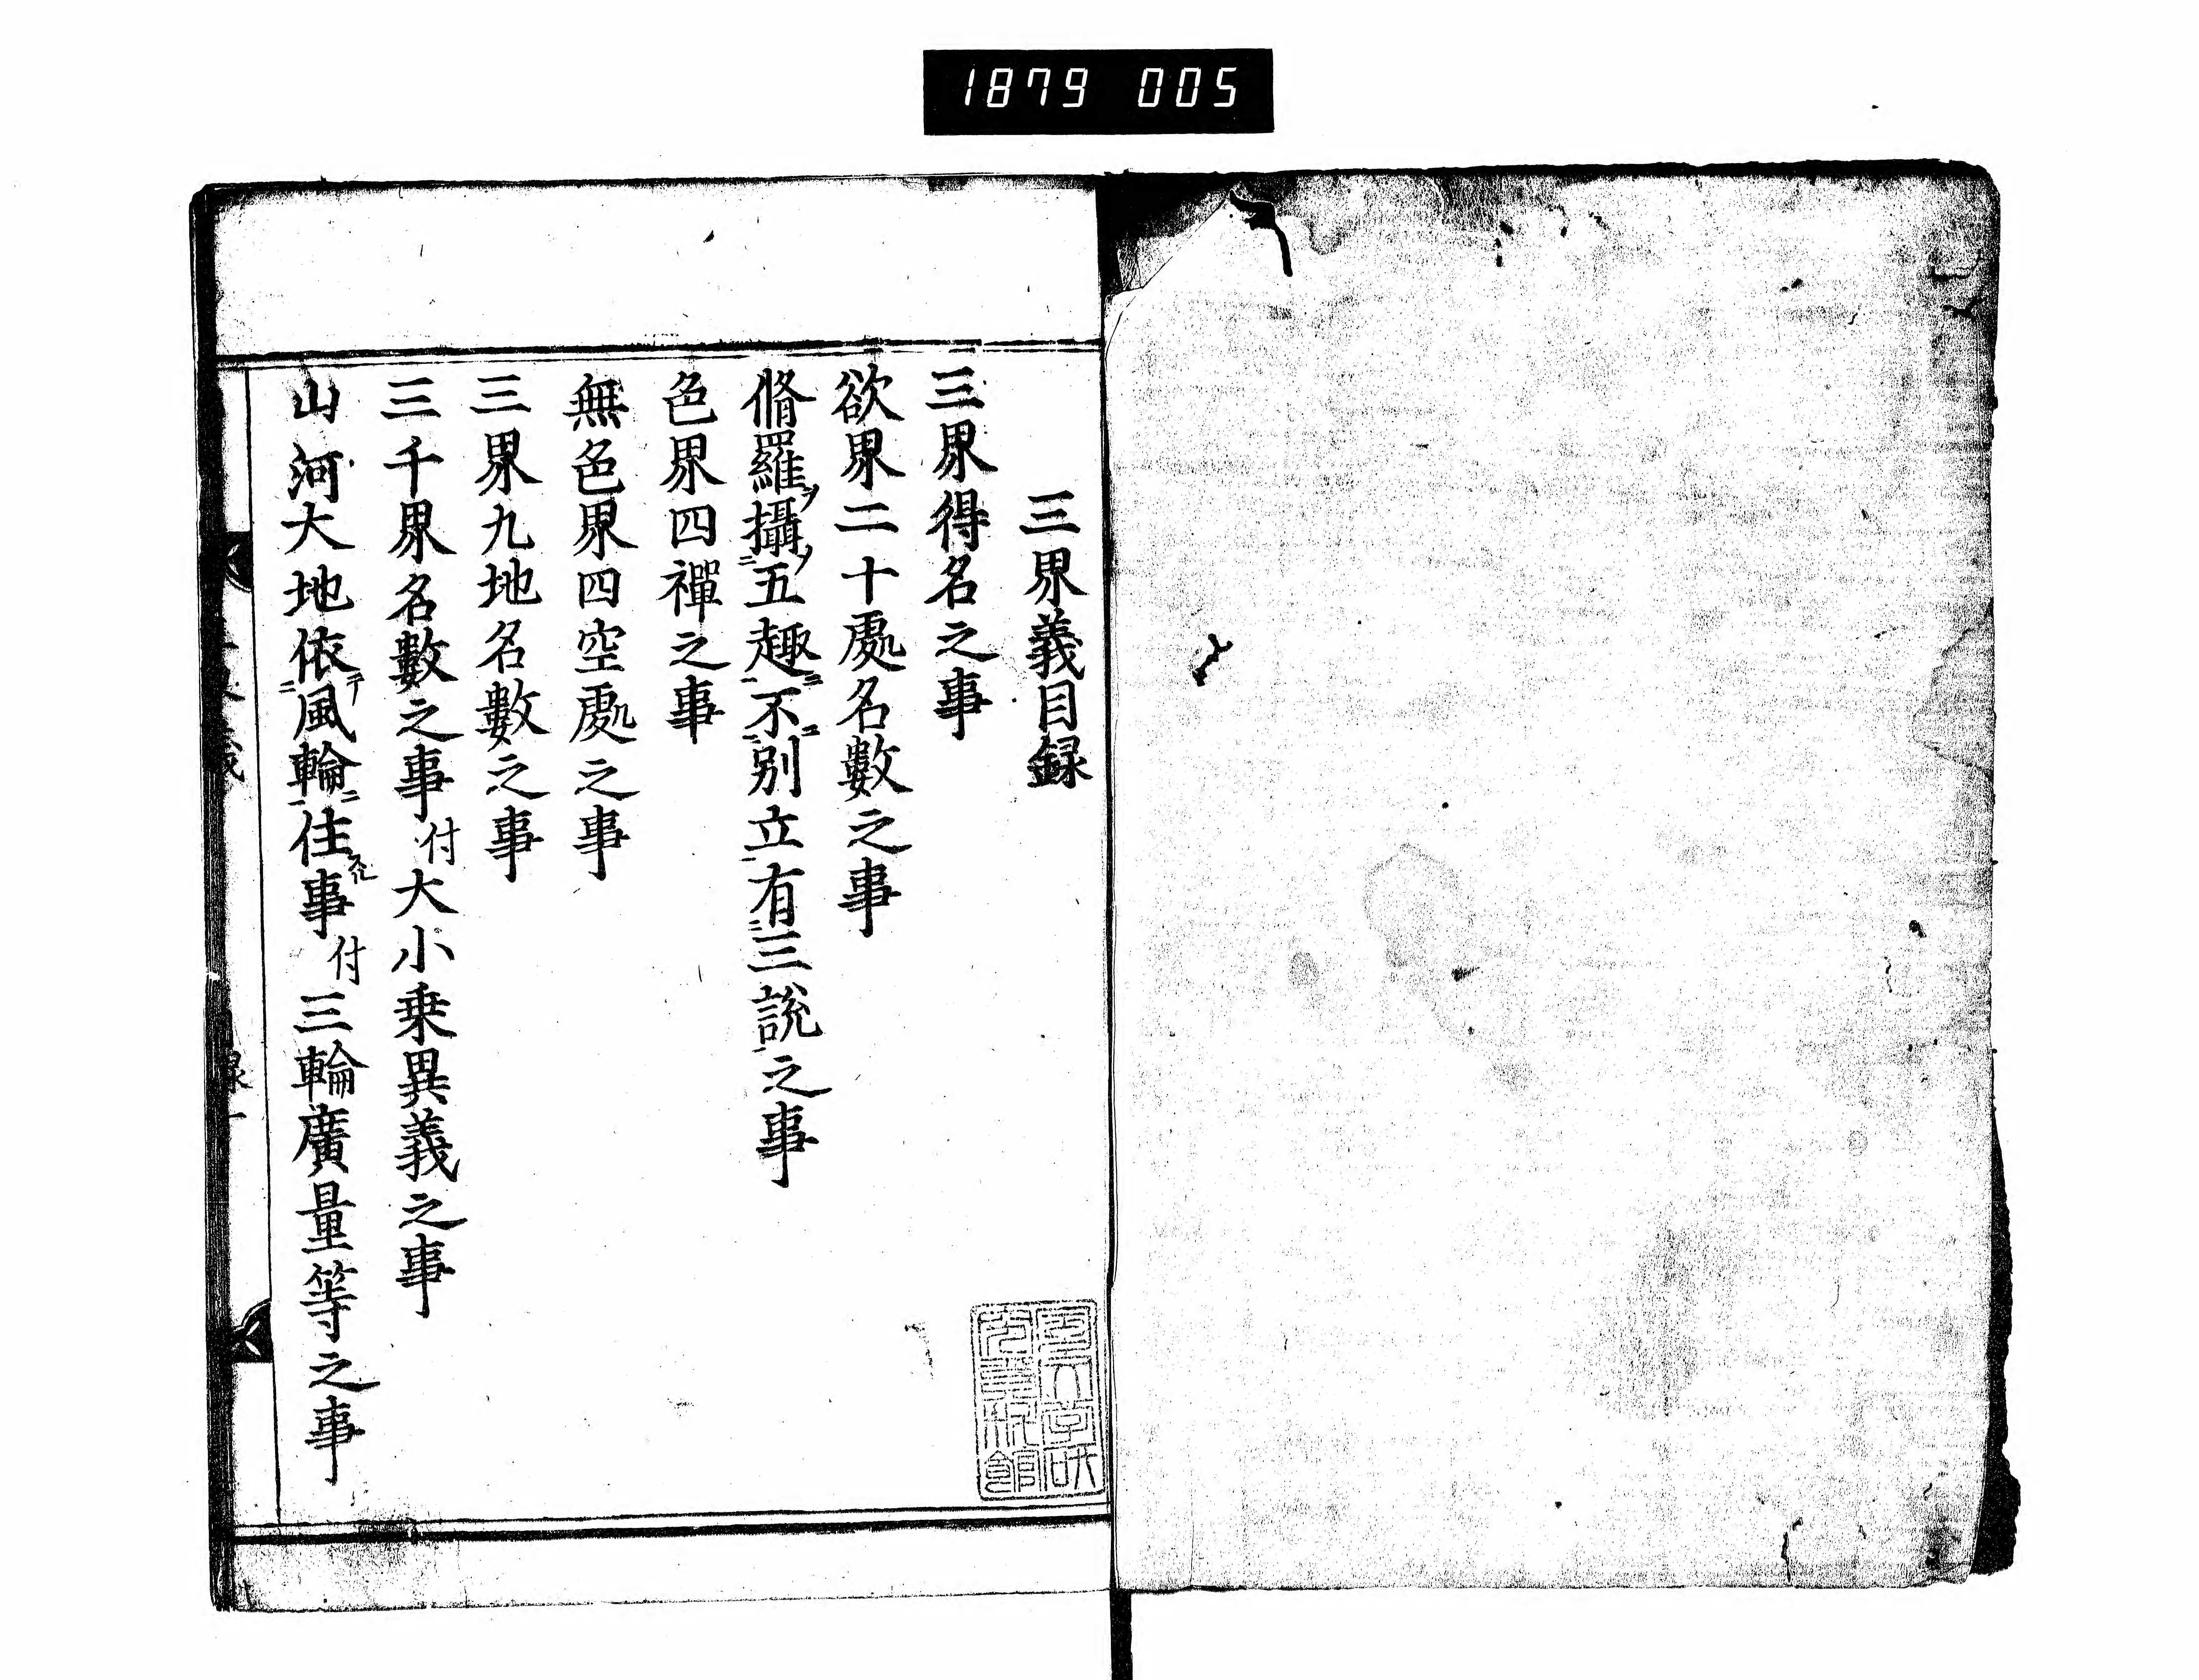 1879 005
三界義目録
三界得名之事
欲界二十處名數之事
脩羅ヲ攝ノ五趣ニ不ニ別立有三說之事
色界四禪之事
無色界四空處之事
三界九地名數之事
三千界名數之事付大小乗異義之事
山河大地依テ風輪ニ住スル事付三輪廣量等之事